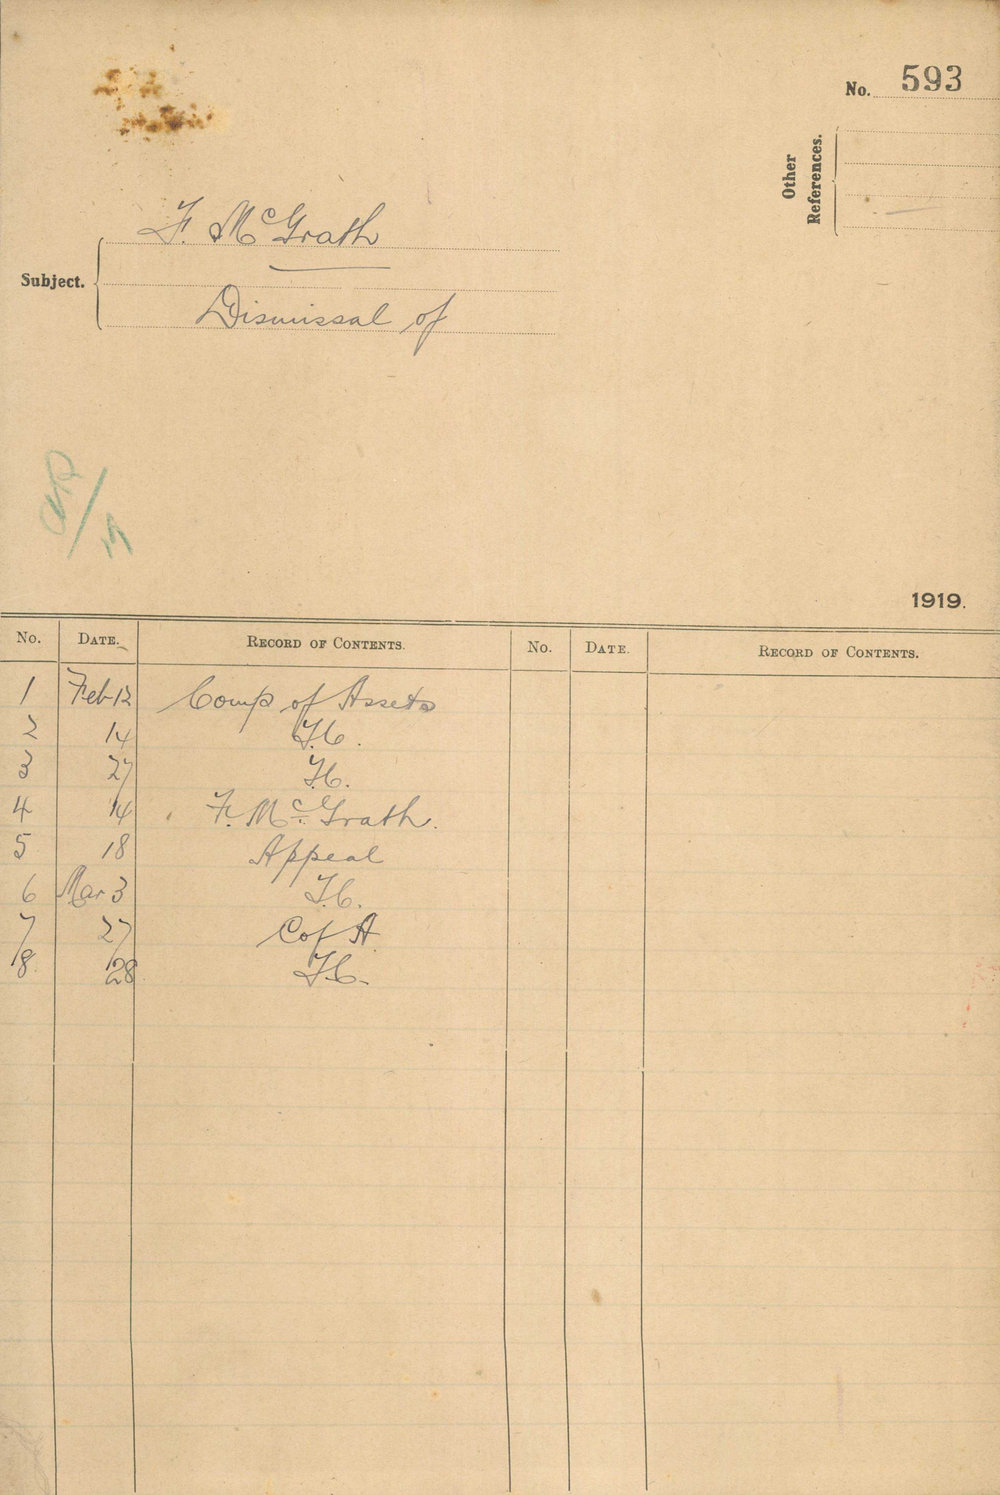 No. 593
Other
References.
F. McGrath
Subject.
Dismissal of
1919.
No. DATE. RECORD OF CONTENTS. No. DATE. RECORD OF CONTENTS.
1 Feb 12 Comp of Assets
2 14 T.C.
3 27 T.C.
4 14 F. McGrath.
5 18 Appeal
6 Mar 3 T.C.
7 27 C of A
8 28 T.C.